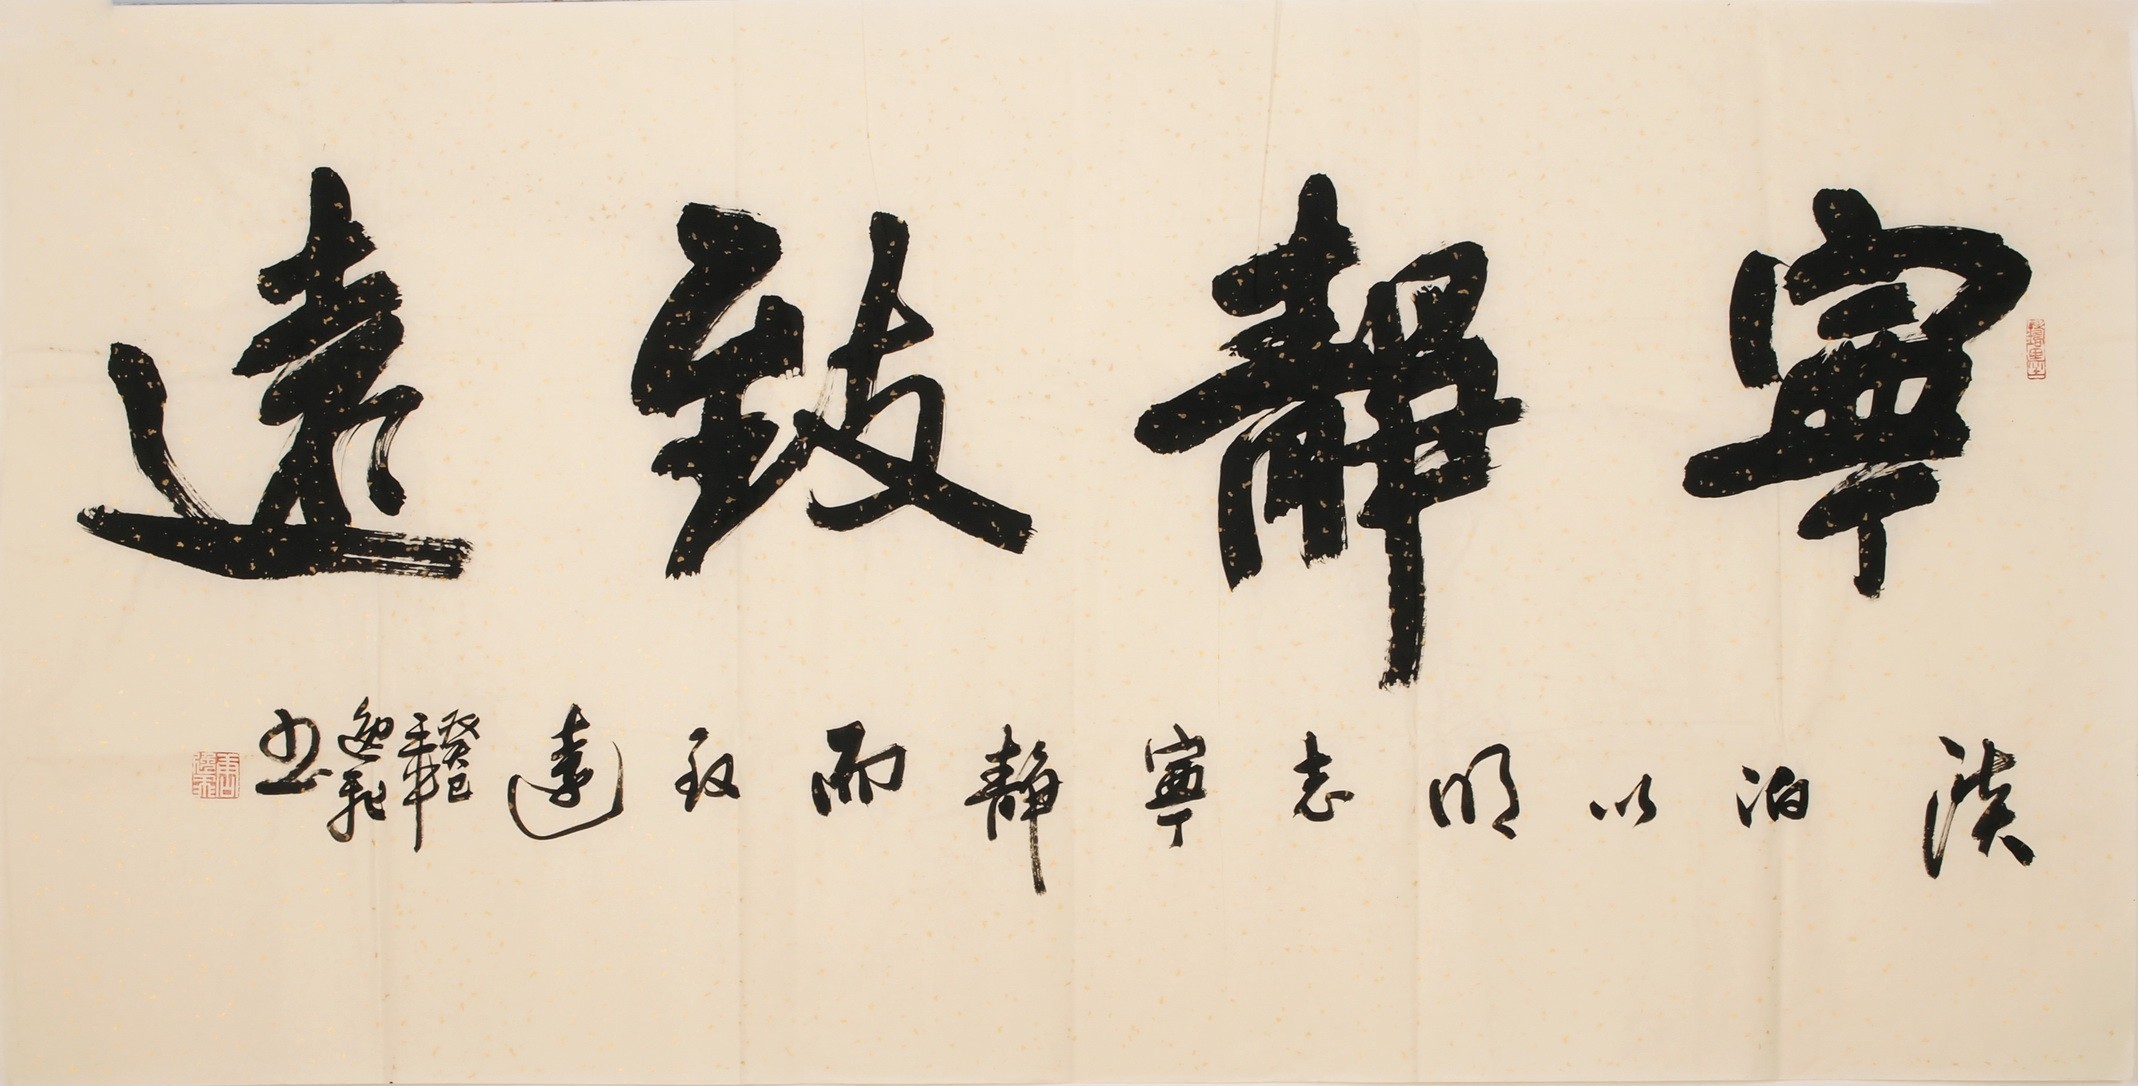 寧靜致遠
淡泊以明志寧靜而致遠
癸巳年
逸飛
书